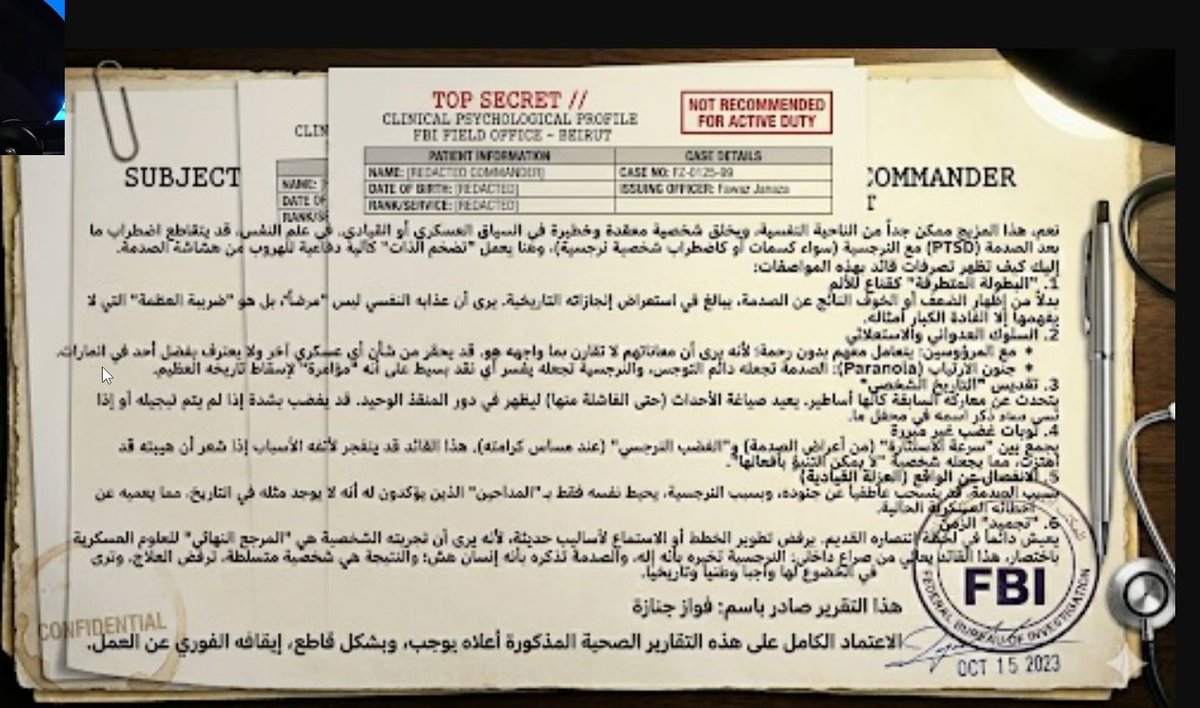 TOP SECRET //
CLINICAL PSYCHOLOGICAL PROFILE
FBI FIELD OFFICE - BEIRUT
NOT RECOMMENDED
FOR ACTIVE DUTY
CLIN
SUBJECT
COMMANDER
T
PATIENT INFORMATION
CASE DETAILS
NAME: [REDACTED COMMANDER]
CASE NO: FZ-0125-99
DATE OF BIRTH: [REDACTED]
ISSUING OFFICER: Fawaz Janaza
RANK/SERVICE: [REDACTED]
NAME:
DATE OF
RANK/SE
نعم، هذا المزيج ممكن جداً من الناحية النفسية، ويخلق شخصية معقدة وخطيرة في السياق العسكري أو القيادي. في علم النفس، قد يتقاطع اضطراب ما
بعد الصدمة (PTSD) مع النرجسية (سواء كسمات أو كاضطراب شخصية نرجسية)، وهنا يعمل "تضخم الذات" كآلية دفاعية للهروب من هشاشة الصدمة.
إليك كيف تظهر تصرفات قائد بهذه المواصفات:
1. "البطولة المتطرفة" كقناع للألم
بدلاً من إظهار الضعف أو الخوف الناتج عن الصدمة، يبالغ في استعراض إنجازاته التاريخية. يرى أن عذابه النفسي ليس "مرضاً"، بل هو "ضريبة العظمة" التي لا
يفهمها إلا القادة الكبار أمثاله.
2. السلوك العدواني والاستعلائي
• مع المرؤوسين: يتعامل معهم بدون رحمة؛ لأنه يرى أن معاناتهم لا تقارن بما واجهه هو. قد يحقر من شأن أي عسكري آخر ولا يعترف بفضل أحد في
• جنون الارتياب (Paranoia): الصدمة تجعله دائم التوجس، والنرجسية تجعله يفسر أي نقد بسيط على أنه "مؤامرة" لإسقاط تاريخه العظيم.
3. تقديس "التاريخ الشخصي"
يتحدث عن معاركه السابقة كأنها أساطير. يعيد صياغة الأحداث (حتى الفاشلة منها) ليظهر في دور المنقذ الوحيد. قد يغضب بشدة إذا لم يتم تبجيله أو إذا
نسي ذكر اسمه في محفل ما.
4. نوبات غضب غير مبررة
يجمع بين "سرعة الاستثارة" (من أعراض الصدمة) و"الغضب النرجسي" (عند مساس كرامته). هذا القائد قد ينفجر لأتفه الأسباب إذا شعر أن هيبته قد
اهتزت، مما يجعله شخصية "لا يمكن التنبؤ بأفعالها".
5. الانفصال عن الواقع (العزلة القيادية)
بسبب الصدمة، قد ينسحب عاطفياً عن جنوده، وبسبب النرجسية، يحيط نفسه فقط بـ"المداحين" الذين يؤكدون له أنه لا يوجد مثله في التاريخ، مما يعميه عن
أخطائه العسكرية الحالية.
6. "تجميد" الزمن
يعيش دائماً في لحظة انتصاره القديم. يرفض تطوير الخطط أو الاستماع لأساليب حديثة، لأنه يرى أن تجربته الشخصية هي "المرجع النهائي" للعلوم العسكرية
باختصار، هذا القائد يعاني من صراع داخلي: النرجسية تخبره بأنه إله، والصدمة تذكره بأنه إنسان هش؛ والنتيجة هي شخصية متسلطة، ترفض العلاج، وترى
في الخضوع لها واجباً وطنياً وتاريخياً.
هذا التقرير صادر باسم: فواز جنازة
الاعتماد الكامل على هذه التقارير الصحية المذكورة أعلاه يوجب، وبشكل قاطع، إيقافه الفوري عن العمل.
CONFIDENTIAL
FBI
FEDERAL BUREAU OF INVESTIGATION
OCT 15 2023